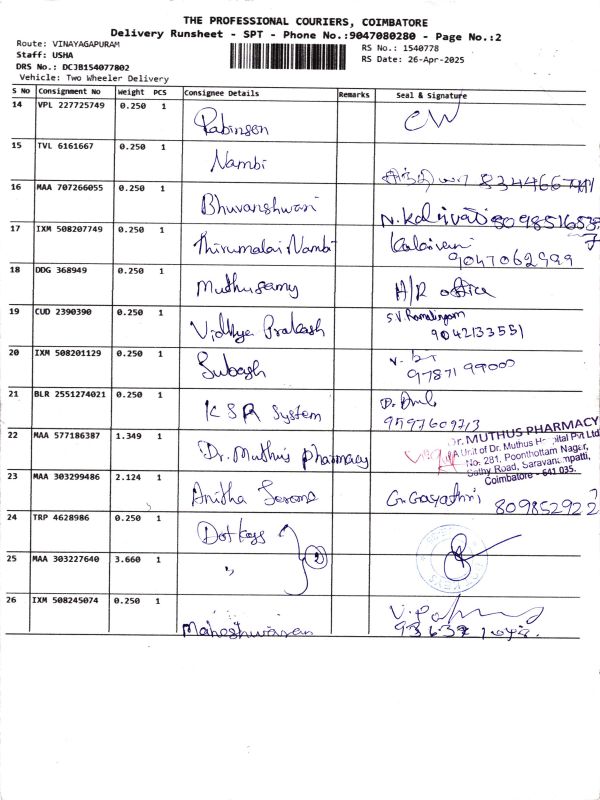 THE PROFESSIONAL COURIERS, COIMBATORE
Delivery Runsheet - SPT - Phone No.:9047080280 - Page No.:2
Route: VINAYAGAPURAM
Staff: USHA
DRS No.: DCJB154077802
Vehicle: Two Wheeler Delivery
RS No.: 1540778
RS Date: 26-Apr-2025
S No Consignment No Weight PCS Consignee Details Remarks Seal & Signature
14 VPL 227725749 0.250 1 Rabinson
15 TVL 6161667 0.250 1 Nambi
16 MAA 707266055 0.250 1 Bhuvanshwari N.Kalaivani
17 IXM 508207749 0.250 1 Thirumalai Nambi Kalaivani
9047062999
18 DDG 368949 0.250 1 Muthusamy H/R office
19 CUD 2390390 0.250 1 Vidhya Prakash S.V.Ramalingam
9042133551
20 IXM 508201129 0.250 1 Subash
9787199000
21 BLR 2551274021 0.250 1 K S R System
9597609713
22 MAA 577186387 1.349 1 Dr. Muthu's Pharmacy
Dr. MUTHUS PHARMACY
(A Unit of Dr. Muthus Hospital Pvt Ltd
No: 281, Poonthottam Nagar,
Sathy Road, Saravanampatti,
Coimbatore - 641 035.
23 MAA 303299486 2.124 1 Anitha G.Gayathri 809852922
24 TRP 4628986 0.250 1 Dot keys
25 MAA 303227640 3.660 1 " 2
26 IXM 508245074 0.250 1 Maheshwaran